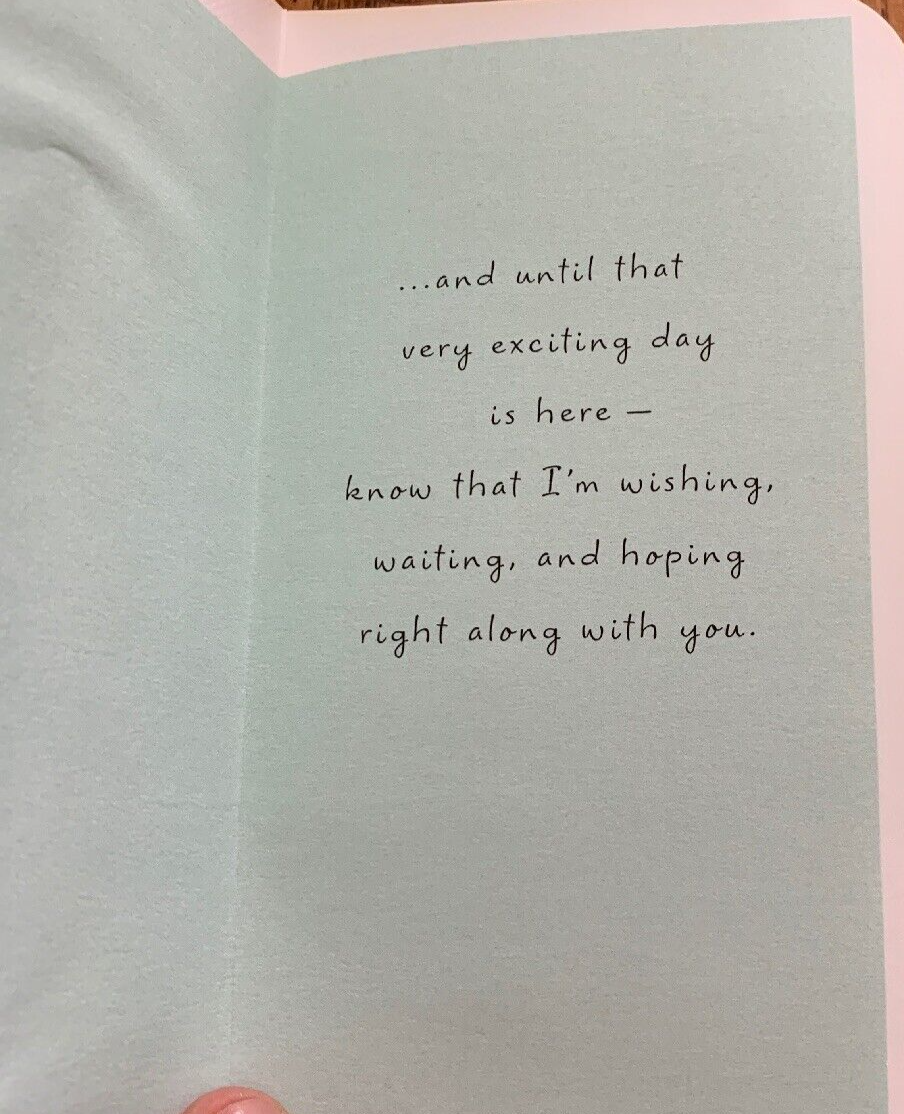 ...and until that
very exciting day
is here —
know that I'm wishing,
waiting, and hoping
right along with you.